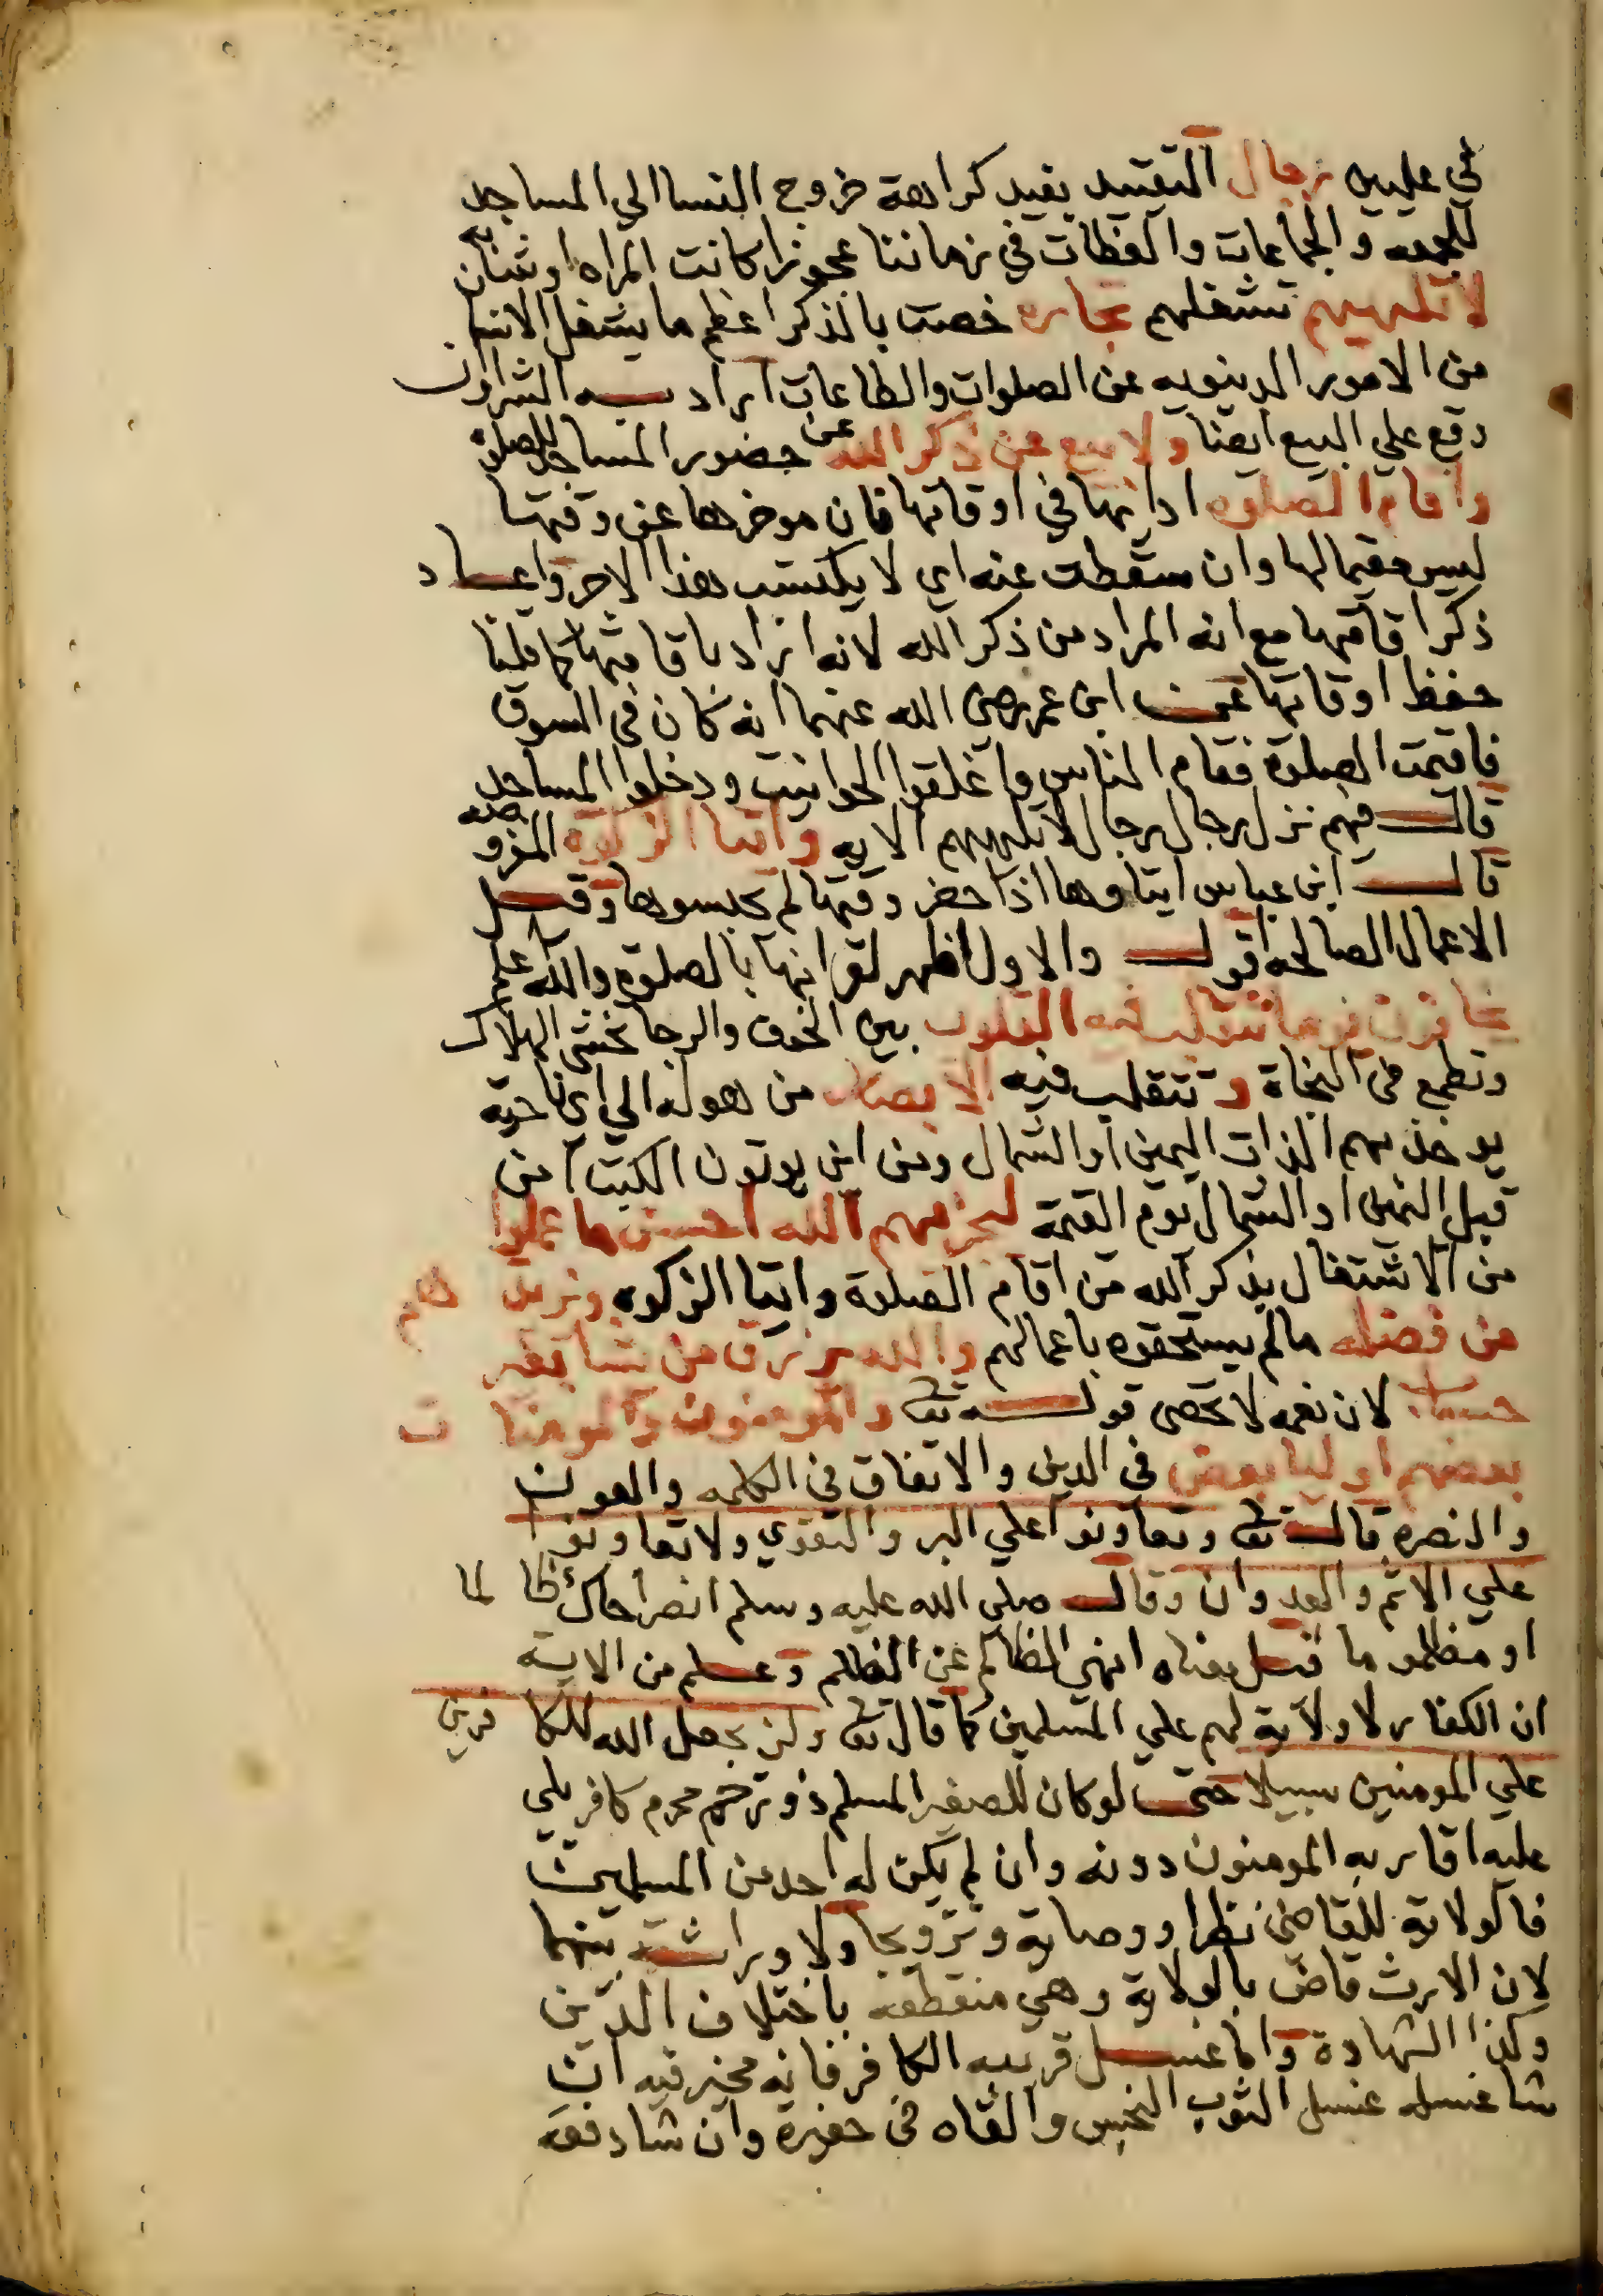 في عليين رجال التقييد يفيد كراهة خروج النسا الي المساجد
للجمعه والجماعات والعظات في زماننا عجوزا كانت المراه او شابه
لا تلهيهم تشغلهم تجارة خصت بالذكر اعظم ما يشغل الانسان
من الامور الدينويه عن الصلوات والطاعات اراد به الشراوان
وقع علي البيع ايضا ولا بيع عن ذكر الله عن حضور المساجد للصلوة
واقام الصلوه ادائها في اوقاتها فان موخرها عن وقتها
ليس مقيما لها وان سقطت عنه اي لا يكتسب هذا الاجر واعاد
ذكر اقامتها مع انه المراد من ذكر الله لانه اراد باقامتها كما قلنا
حفظ اوقاتها عن ابن عمر رضي الله عنهما انه كان في السوق
فاقيمت الصلوة فقام الناس واغلقوا الحوانيت ودخلوا المساجد
قال فيهم نزل رجال رجال لا تلهيهم الايه وايتا الزكوة المفروضه
قال ابن عباس ايتاوها اذا حضر وقتها لم يحبسوها وقيل
الاعمال الصالحه اقول والاول اظهر لقرانها بالصلوة والله اعلم
يخافون يوما تتقلب فيه القلوب بين الخوف والرجا تخشي الهلاك
وتطمع في النجاة وتتقلب فيه الابصار من هوله الي اي ناحية
يوخذ بهم الذات اليمين او الشمال ومن اين يوتون الكتب امن
قبل اليمين او الشمال يوم القيمة ليجزيهم الله احسن ما عملوا
من الاشتغال بذكر الله من اقام الصلوة وايتا الزكوه ويزيدهم
من فضله مالم يستحقوه باعمالهم والله يرزق من يشا بغير
حساب لان نعمه لا تحصى قوله تع والمومنون والمومنات
بعضهم اوليا بعض في الدين والاتفاق في الكلمه والعون
والنصره قال تع وتعاونوا علي البر والتقوي ولا تعاونوا
علي الاثم والعدوان وقال صلي الله عليه وسلم انصر اخاك ظالما
او مظلوما قيل معناه انهي الظالم عن الظلم وعلم من الاية
ان الكفار لا ولاية لهم علي المسلمين كما قال تع ولن يجعل الله للكافرين
علي المومنين سبيلا حتى لو كان للصغير المسلم ذو رحم محرم كافر يلي
عليه اقاربه المومنون دونه وان لم يكن له احد من المسلمين
فالولاية للقاضي نظرا ووصاية وتزويجا ولا وراثة بينهما
لان الارث قاض بالولاية وهي منقطعه باختلاف الدين
وكذا الشهادة واما غسل قريبه الكافر فانه مخير فيه ان
شا غسله غسل الثوب النجس والقاه في حفيرة وان شا دفعه